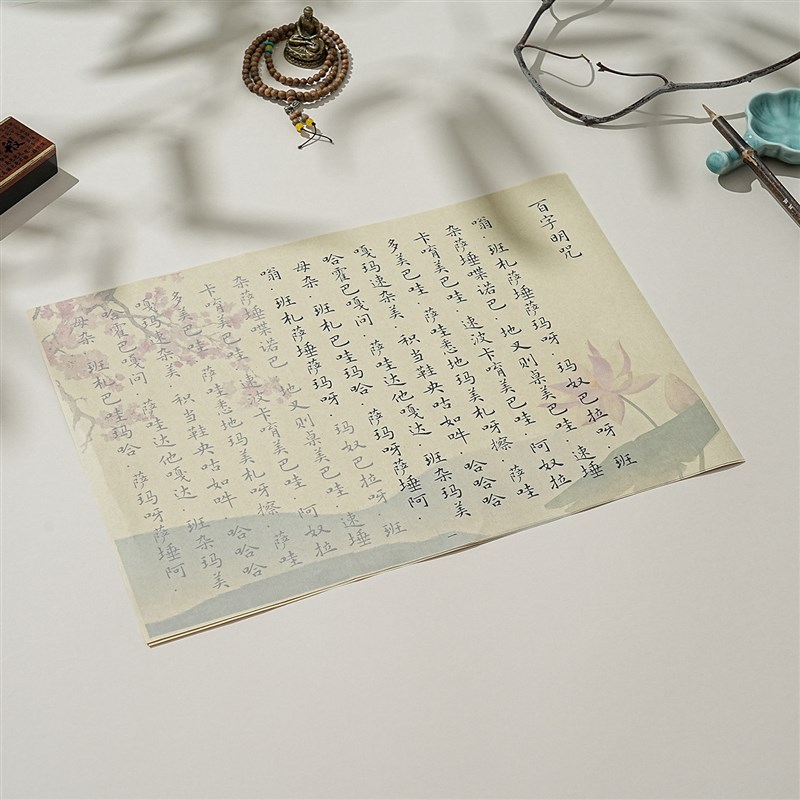 百字明咒
嗡．班札萨埵萨玛呀．玛奴巴拉呀．班
杂萨埵喋诺巴．地叉则桌美巴哇．速埵
卡唷美巴哇．速波卡唷美巴哇．阿奴拉
多美巴哇．萨哇悉地玛美札呀擦．萨哇
嘎玛速杂美．积当鞋央咕如吽．哈哈哈
哈霍巴嘎问．萨哇达他嘎达．班杂玛美
母杂．班札巴哇玛哈．萨玛呀萨埵阿．
嗡．班札萨埵萨玛呀．玛奴巴拉呀．班
杂萨埵喋诺巴．地叉则桌美巴哇．速埵
卡唷美巴哇．速波卡唷美巴哇．阿奴拉
多美巴哇．萨哇悉地玛美札呀擦．萨哇
嘎玛速杂美．积当鞋央咕如吽．哈哈哈
哈霍巴嘎问．萨哇达他嘎达．班杂玛美
母杂．班札巴哇玛哈．萨玛呀萨埵阿．
一